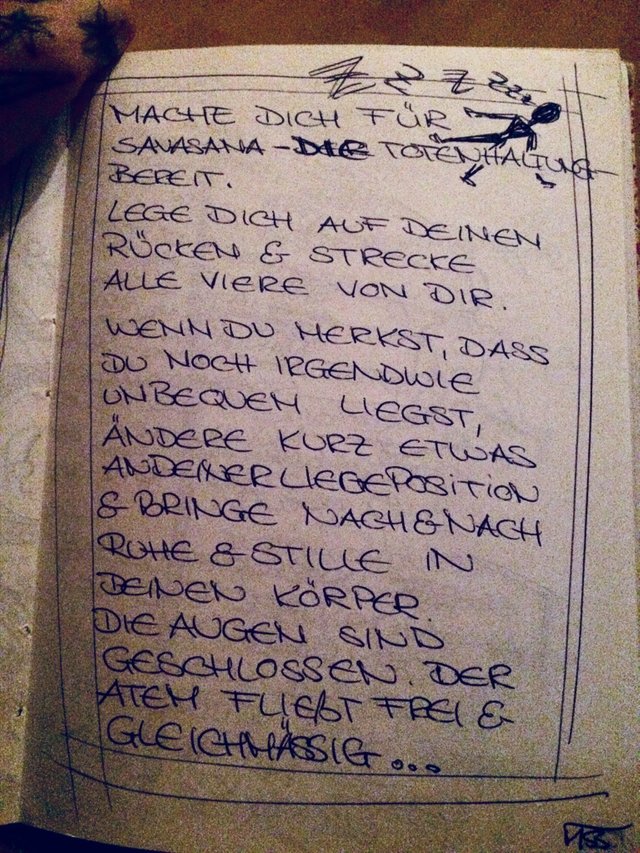 ZZZZzz
MACHE DICH FÜR
SAVASANA - DIE TOTENHALTUNG
BEREIT.
LEGE DICH AUF DEINEN
RÜCKEN & STRECKE
ALLE VIERE VON DIR.
WENN DU MERKST, DASS
DU NOCH IRGENDWIE
UNBEQUEM LIEGST,
ÄNDERE KURZ ETWAS
AN DEINER LIEGEPOSITION
& BRINGE NACH & NACH
RUHE & STILLE IN
DEINEN KÖRPER.
DIE AUGEN SIND
GESCHLOSSEN. DER
ATEM FLIEßT FREI &
GLEICHMÄSSIG...